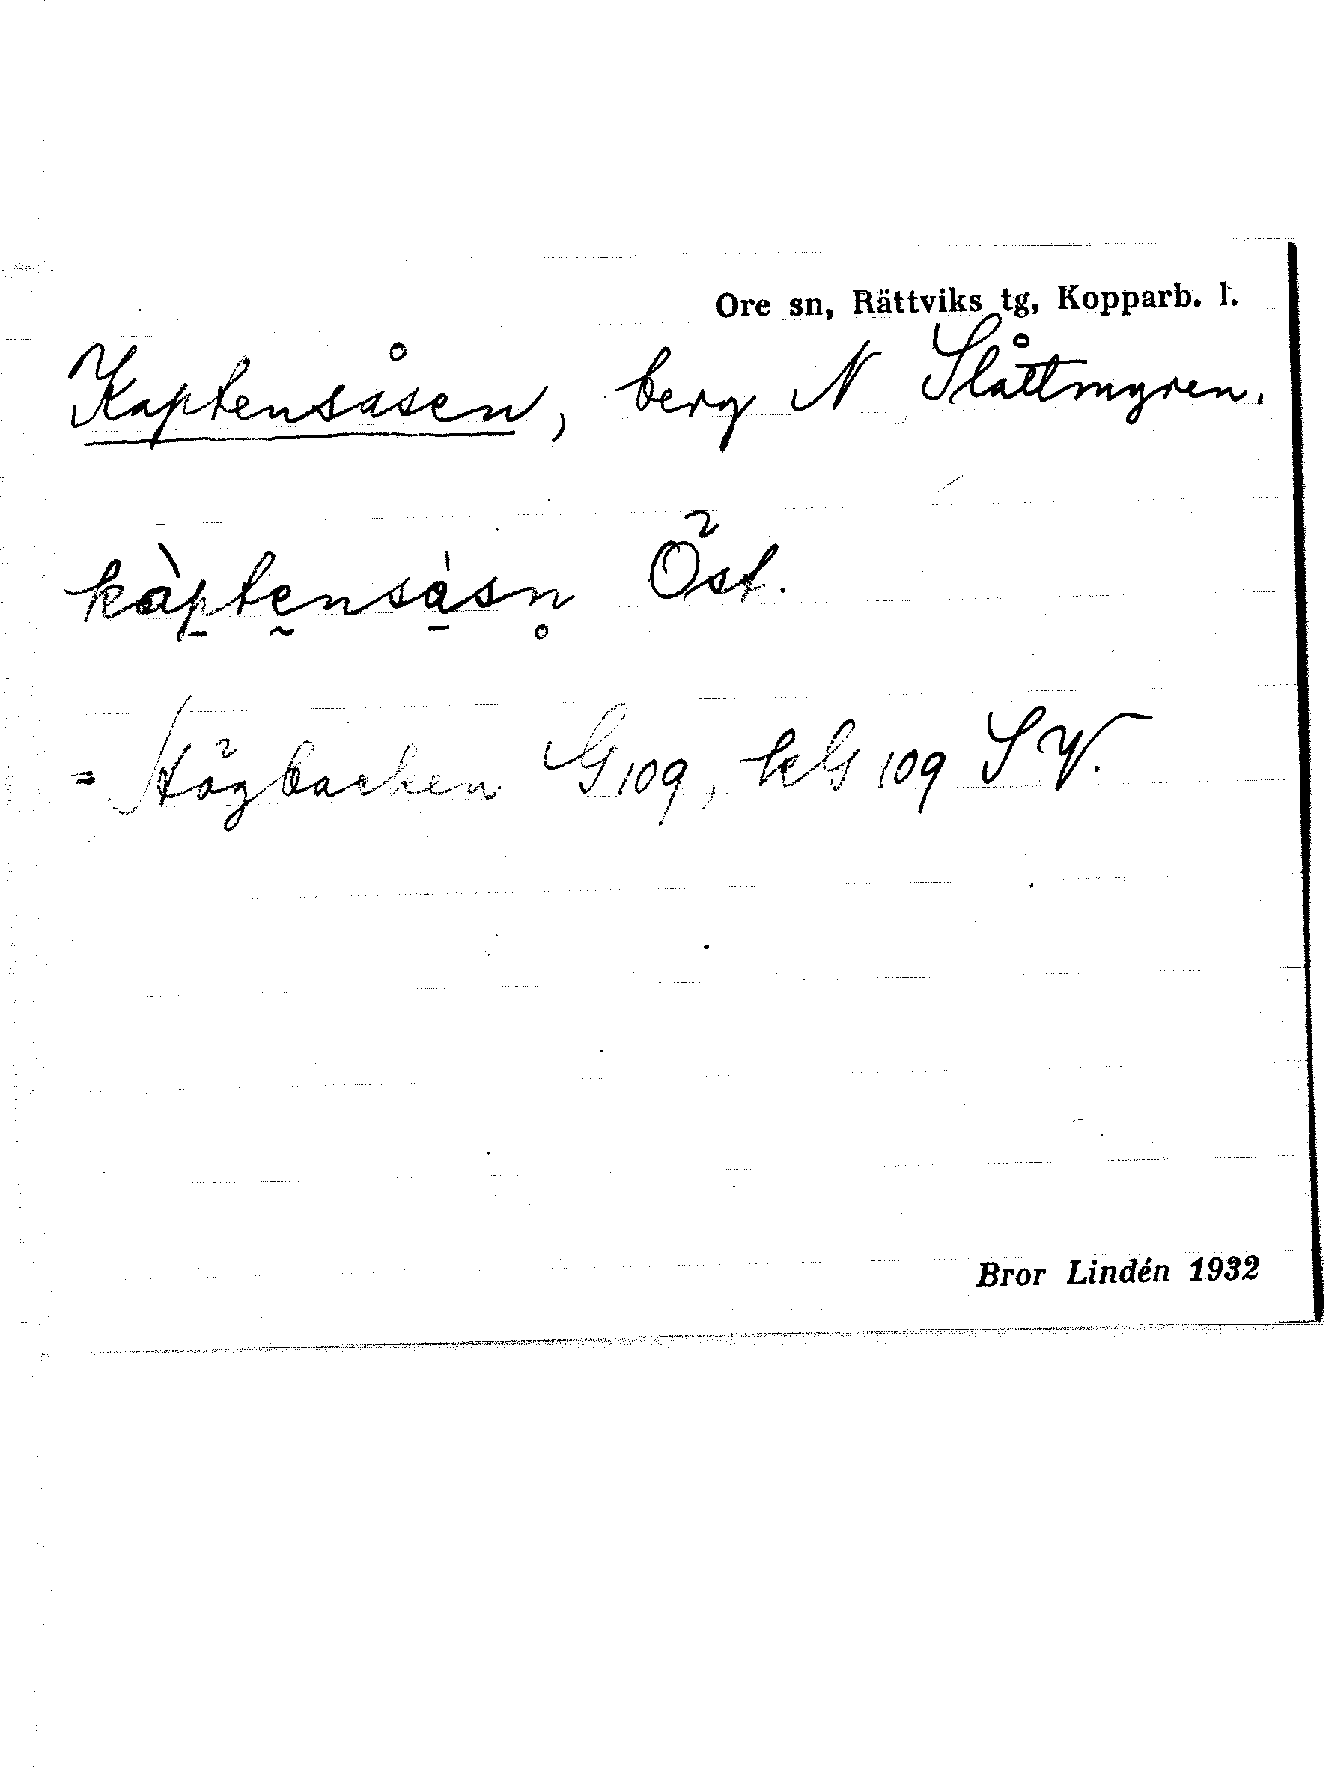 Ore sn, Rättviks tg, Kopparb. l.
Kaptensåsen, berg N Slåttmyren.
kàp̠tḛnsa̠̍sn̥ Öst.
= Högbacken G109, kG 109 SV.
Bror Lindén 1932